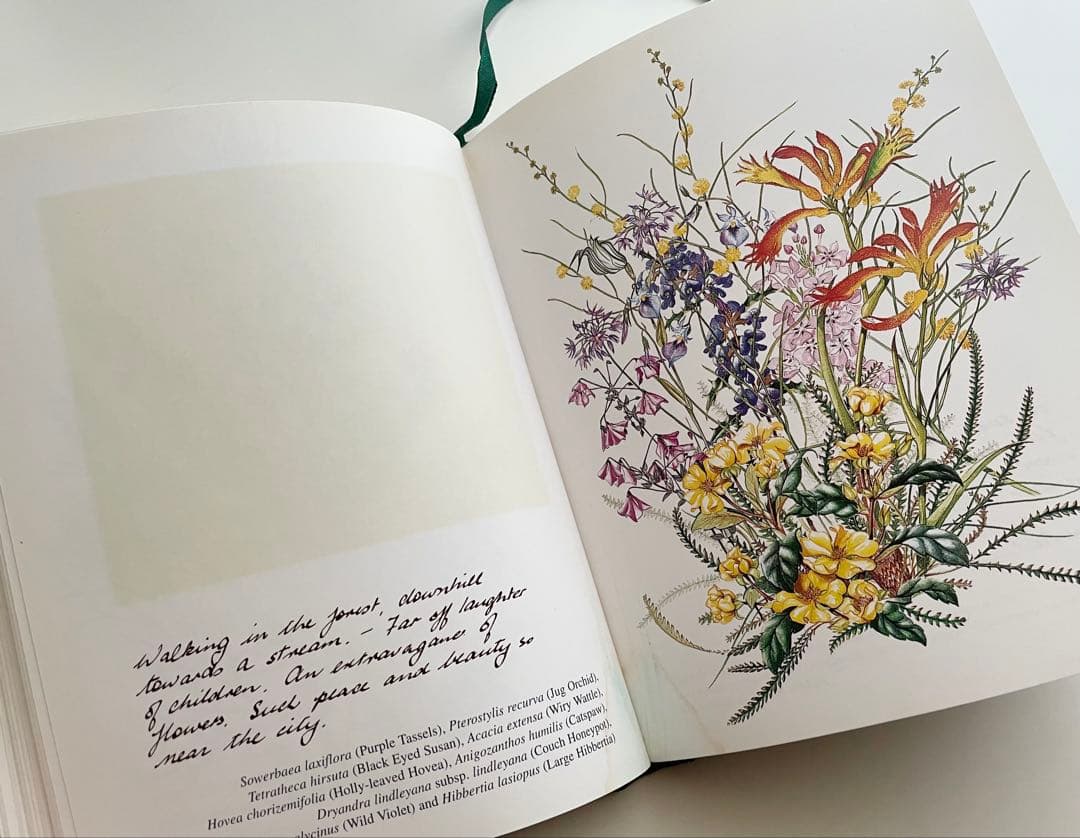 Walking in the forest, downhill
towards a stream. – Far off laughter
of children. An extravagance of
flowers. Such peace and beauty so
near the city.
Sowerbaea laxiflora (Purple Tassels), Pterostylis recurva (Jug Orchid),
Tetratheca hirsuta (Black Eyed Susan), Acacia extensa (Wiry Wattle),
Hovea chorizemifolia (Holly-leaved Hovea), Anigozanthos humilis (Catspaw),
Dryandra lindleyana subsp. lindleyana (Couch Honeypot),
(Wild Violet) and Hibbertia lasiopus (Large Hibbertia)